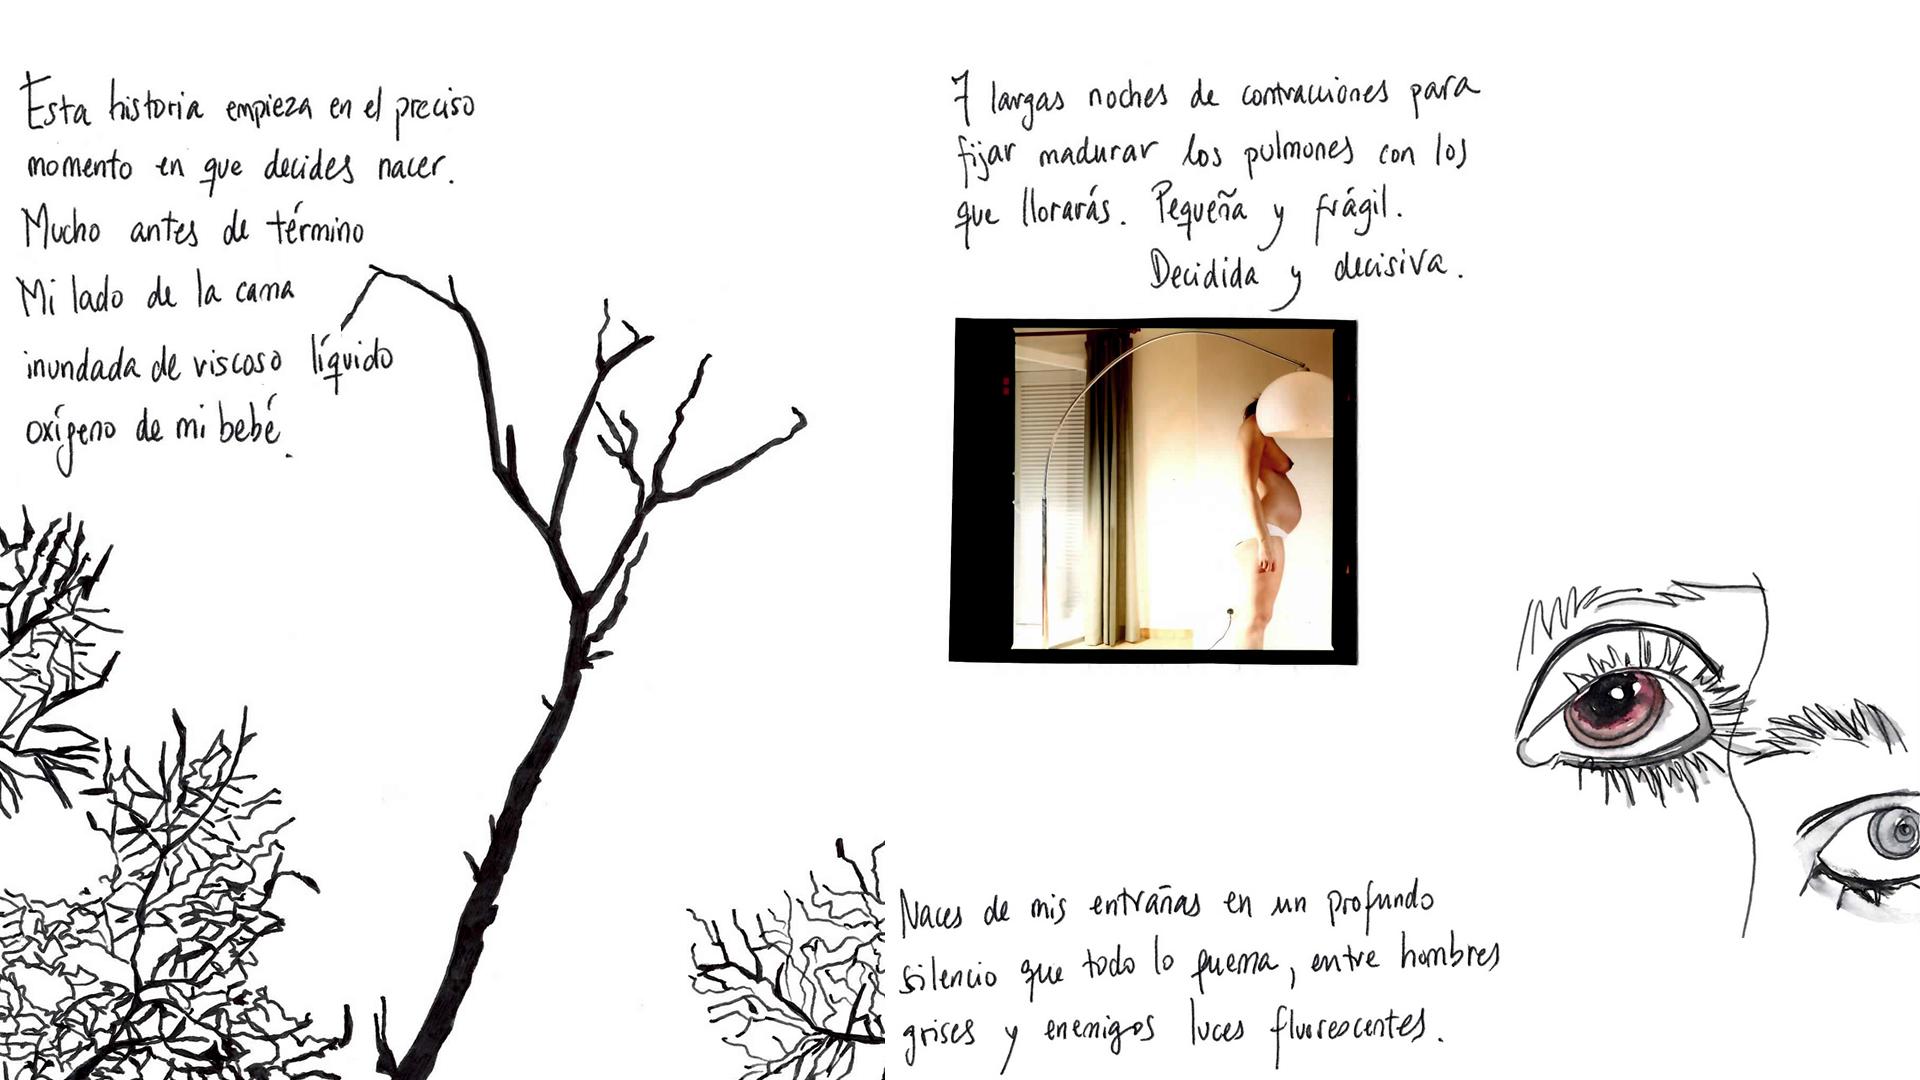 Esta historia empieza en el preciso
momento en que decides nacer.
Mucho antes de término
Mi lado de la cama
inundada de viscoso líquido
oxígeno de mi bebé.
7 largas noches de contracciones para
fijar madurar los pulmones con los
que llorarás. Pequeña y frágil.
Decidida y decisiva.
Naces de mis entrañas en un profundo
silencio que todo lo quema, entre hombres
grises y enemigos luces fluorescentes.